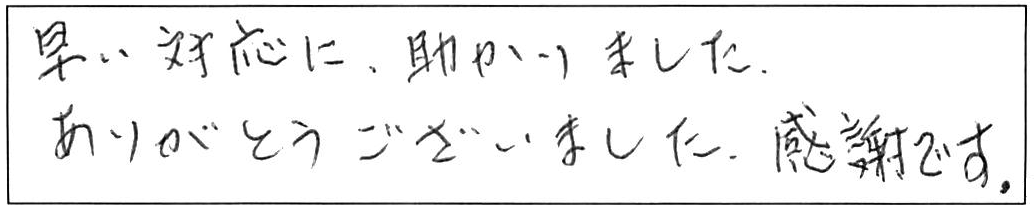 早い対応に、助かりました.
ありがとうございました. 感謝です.